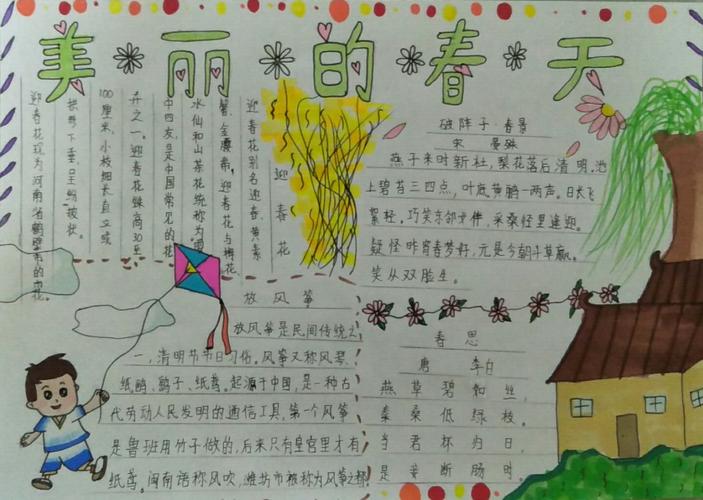 美丽的春天
迎春花
迎春花别名迎春、黄素
馨、金腰带,迎春花与梅花
水仙和山茶花统称为"雪
中四友,是中国常见的花
卉之一。迎春花株高30至
100厘米,小枝细长直立或
拱形下垂,呈纷披状。
迎春花现为河南省鹤壁市的市花。
破阵子·春景
宋 晏殊
燕子来时新社,梨花落后清明。池
上碧苔三四点,叶底黄鹂一两声。日长飞
絮轻。巧笑东邻女伴,采桑径里逢迎。
疑怪昨宵春梦好,元是今朝斗草赢。
笑从双脸生。
放风筝
放风筝是民间传统之
一,清明节节日习俗。风筝又称风琴、
纸鹞、鹞子、纸鸢。起源于中国,是一种古
代劳动人民发明的通信工具,第一个风筝
是鲁班用竹子做的,后来只有皇宫里才有
纸鸢。闽南语称风吹,潍坊市被称为风筝之都
春思
唐 李白
燕草碧如丝,
秦桑低绿枝。
当君怀归日,
是妾断肠时。